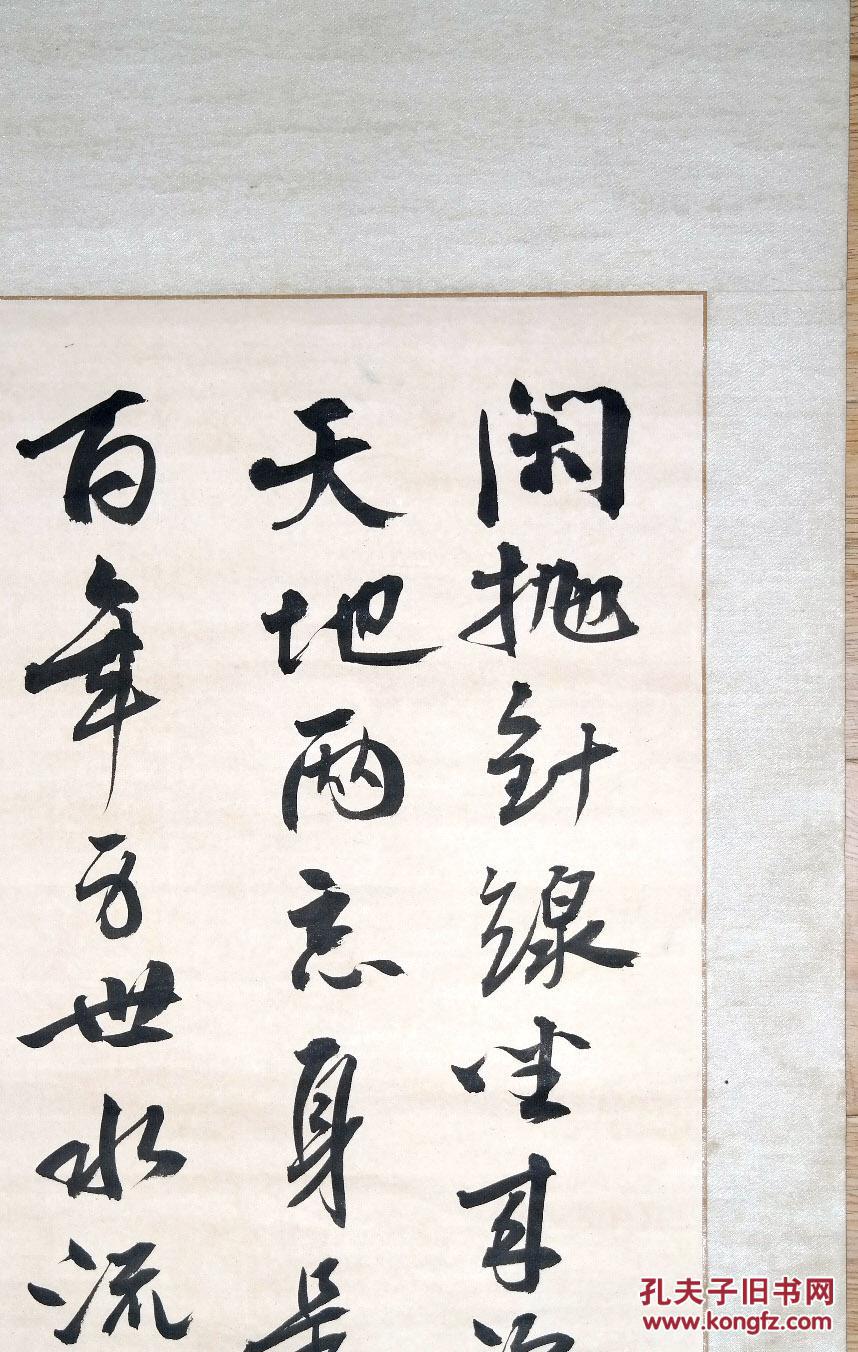 闲抛針線坐
天地两忘身
百年万世水流
孔夫子旧书网
www.kongfz.com